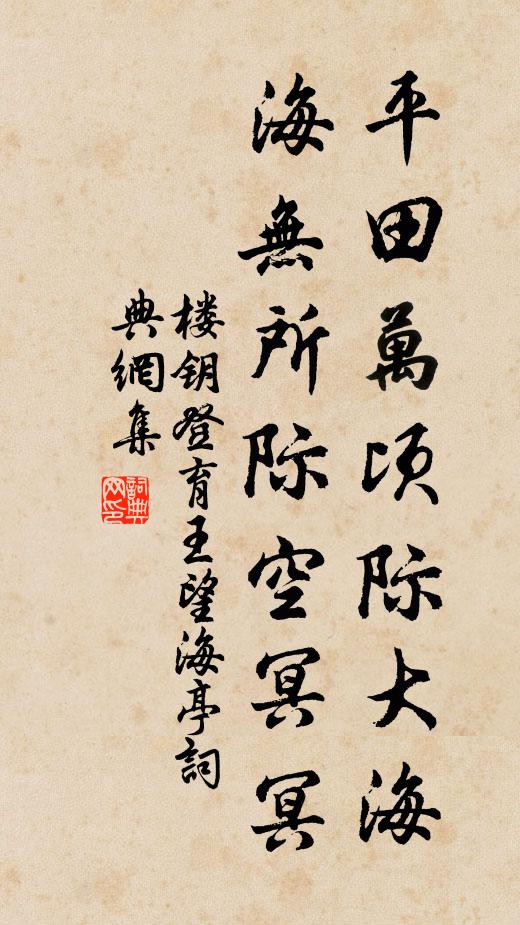 平田萬顷际大海
海無所际空冥冥
楼钥登育王望海亭詞
典網集
詞典网印